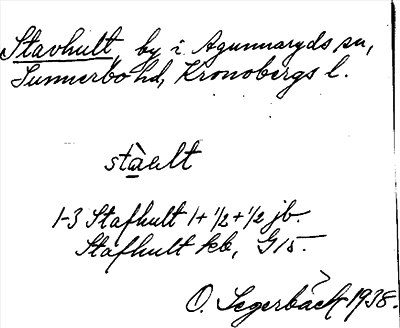 Stavhult, by i Agunnaryds sn,
Sunnerbo hd, Kronobergs l.
stàult
1-3 Stafhult 1 + 1/2 + 1/2 jb.
Stafhult kb, G15.
O. Segerbäck 1938.